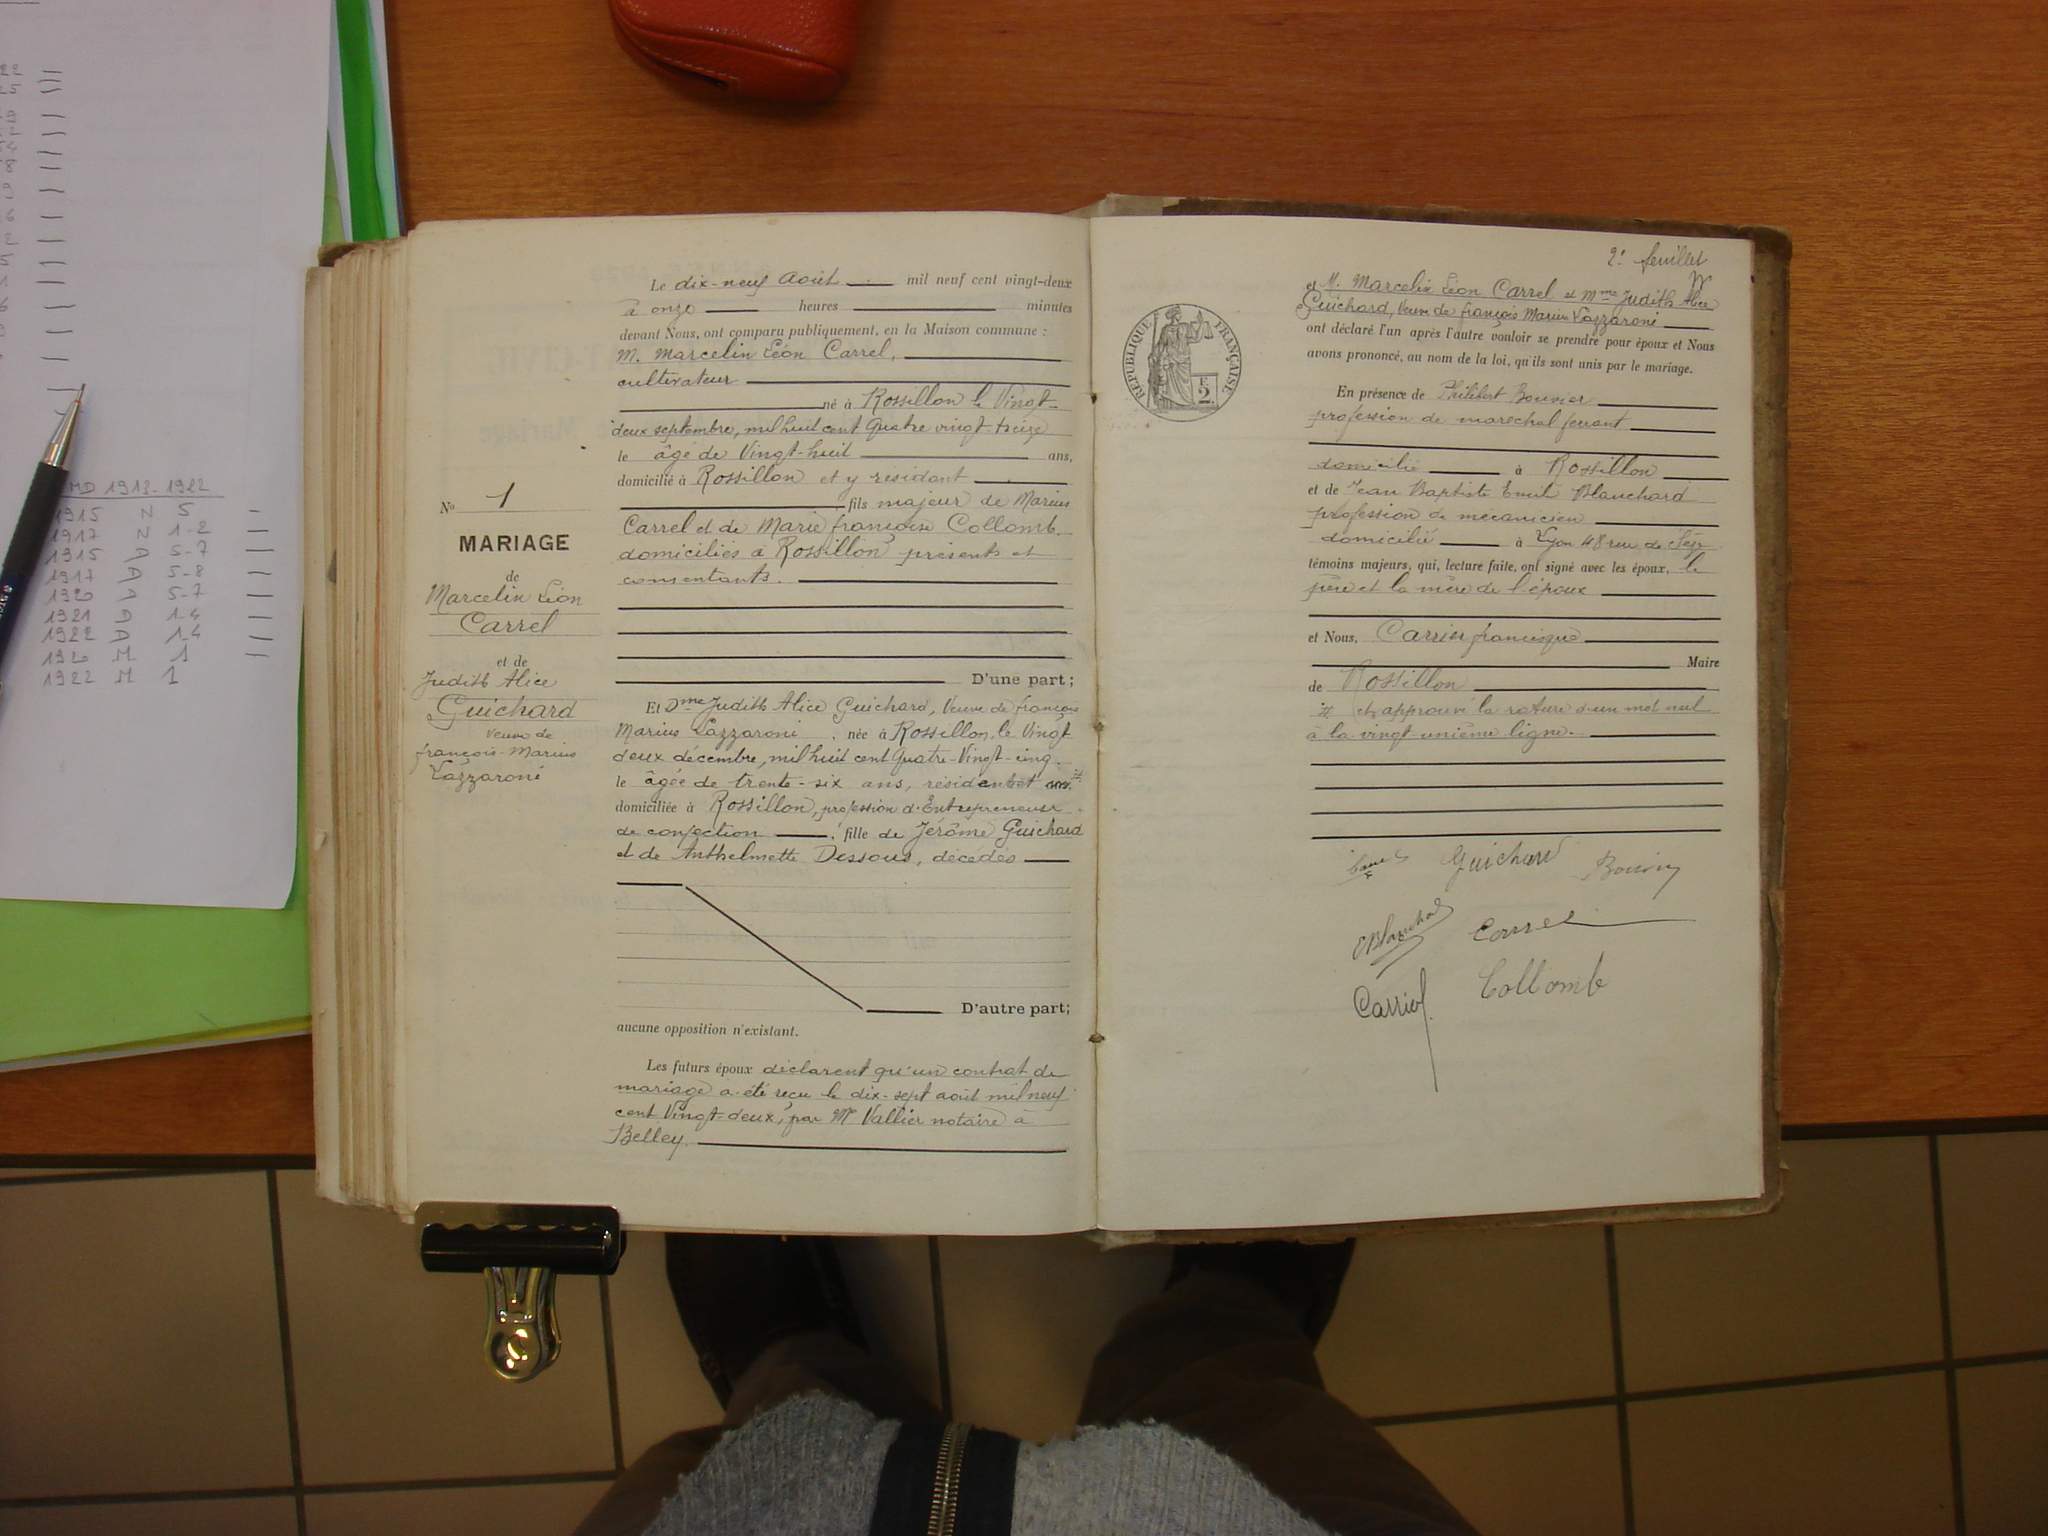 22
25
MD 1913-1922
1915 N 5
1917 N 1-2
1915 D 5-7
1917 D 5-8
1920 D 5-7
1921 D 1-4
1922 D 1-4
1920 M 1
1922 M 1
No 1
MARIAGE
de
Marcelin Léon
Carrel
et de
Judith Alice
Guichard
veuve de
françois-Marius
Lazzaroni
Le dix-neuf Août mil neuf cent vingt-deux
à onze heures minutes
devant Nous, ont comparu publiquement, en la Maison commune :
M. Marcelin Léon Carrel,
cultivateur
né à Rossillon le Vingt-
deux septembre, mil huit cent Quatre vingt-treize
le âgé de Vingt-huit ans,
domicilié à Rossillon et y résidant
fils majeur de Marius
Carrel et de Marie françoise Collomb
domiciliés à Rossillon présents et
consentants.
D'une part ;
Et Dme Judith Alice Guichard, Veuve de françois
Marius Lazzaroni, née à Rossillon, le Vingt
deux décembre, mil huit cent Quatre-Vingt-cinq
le âgée de trente-six ans, résidente et
domiciliée à Rossillon, profession d'Entrepreneuse
de confection, fille de Jérôme Guichard
et de Anthelmette Dessous, décédés
D'autre part ;
aucune opposition n'existant.
Les futurs époux déclarent qu'un contrat de
mariage a été reçu le dix-sept août mil neuf
cent Vingt-deux, par Me Vallier notaire à
Belley.
2e feuillet
RÉPUBLIQUE FRANÇAISE
2
et M. Marcelin Léon Carrel et Mme Judith Alice
Guichard, Veuve de françois Marius Lazzaroni
ont déclaré l'un après l'autre vouloir se prendre pour époux et Nous
avons prononcé, au nom de la loi, qu'ils sont unis par le mariage.
En présence de Philibert Bouvier
profession de maréchal ferrant
domicilié à Rossillon
et de Jean Baptiste Emile Blanchard
profession de mécanicien
domicilié à Lyon 48 rue de Sèze
témoins majeurs, qui, lecture faite, ont signé avec les époux, le
père et la mère de l'époux
et Nous, Carrier francisque
Maire
de Rossillon
et approuvé la rature d'un mot nul
à la vingt-unième ligne.
Guichard
Bouvier
EBlanchard
Carrel
Collomb